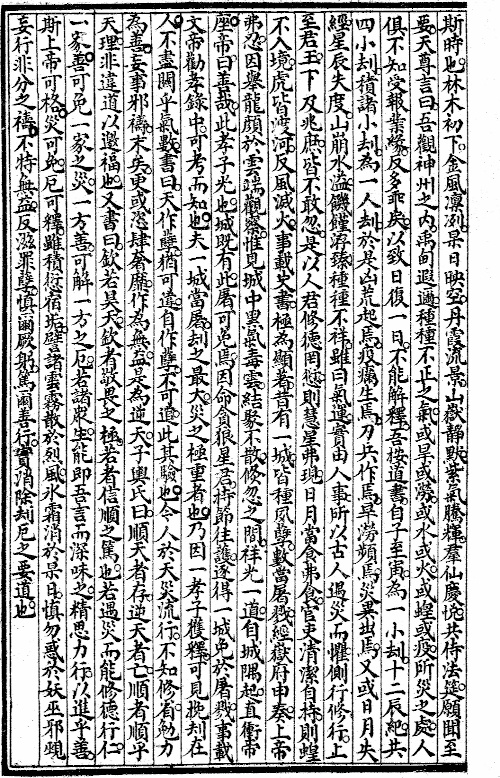 斯時也。林木初下。金風凜冽。杲日映空。丹霞流景。山嶽靜默。紫氣騰輝。羣仙慶悅。共侍法筵。願聞至
要。天尊言曰。吾觀神州之內。禹甸遐邇。種種不正之氣。或旱或澇。或水或火。或蝗或疫。所災之處。人
俱不知受報業緣。反多乖戾。以致日復一日。不能解釋。吾按道書。自子至亥。為一小刼。十二辰紀。共
四小刼。積諸小刼。為一人刼。於是凶荒起焉。疫癘生焉。刀兵作焉。旱澇頻焉。災異出焉。又或日月失
經。星辰失度。山崩水溢。饑饉洊臻。種種不祥。雖曰氣運。實由人事。所以古人遇災而懼。側行修行。上
至君王。下及兆庶。皆不敢忽。是以人君修德罔愆。則慧星弗現。日月當食弗食。官吏清潔自持。則蝗
不入境。虎皆渡河。反風滅火。事載史書。極為顯著。昔有一城。皆種夙孽。數當屠戮。經嶽府申奏。上帝
弗忍。因舉龍顏於雲端觀察。惟見城中黑氣毒雲。結聚不散。倐忽之間。祥光一道。自城隅起。直衝帝
座。帝曰善哉。此孝子光也。城既有此。屠可免焉。因命貪狼星君。持節往護。遂得一城免於屠戮。事載
文帝勸孝錄中。可考而知也。夫一城當屠。刼之最大。災之極重者也。乃因一孝子。獲釋可見。挽刼在
人。不盡關乎氣數。書曰。天作孽。猶可違。自作孽。不可逭。此其驗也。今人於天災流行。不知修省。勉力
為善。妄事邪禱。木矢更或恣肆奢靡。作為無益。是為逆天。子輿氏曰。順天者存。逆天者亡。順者順乎
天理。非違道以邀福也。又書曰。欽若昊天。欽者敬畏之極。若者信順之篤也。若遇災而能修德行仁。
一家善。可免一家之災。一方善。可解一方之厄。若諸眾生。能即吾言而深味之。精思力行。以進乎善。
斯上帝可格。災可免。厄可釋。雖積愆宿垢。譬諸雲霧散於烈風。氷霜消於杲日。慎勿惑於妖巫邪覡。
妄行非分之禱。不特無益。反滋罪孽。慎爾厥躬。篤爾善行。實消除刼厄之要道也